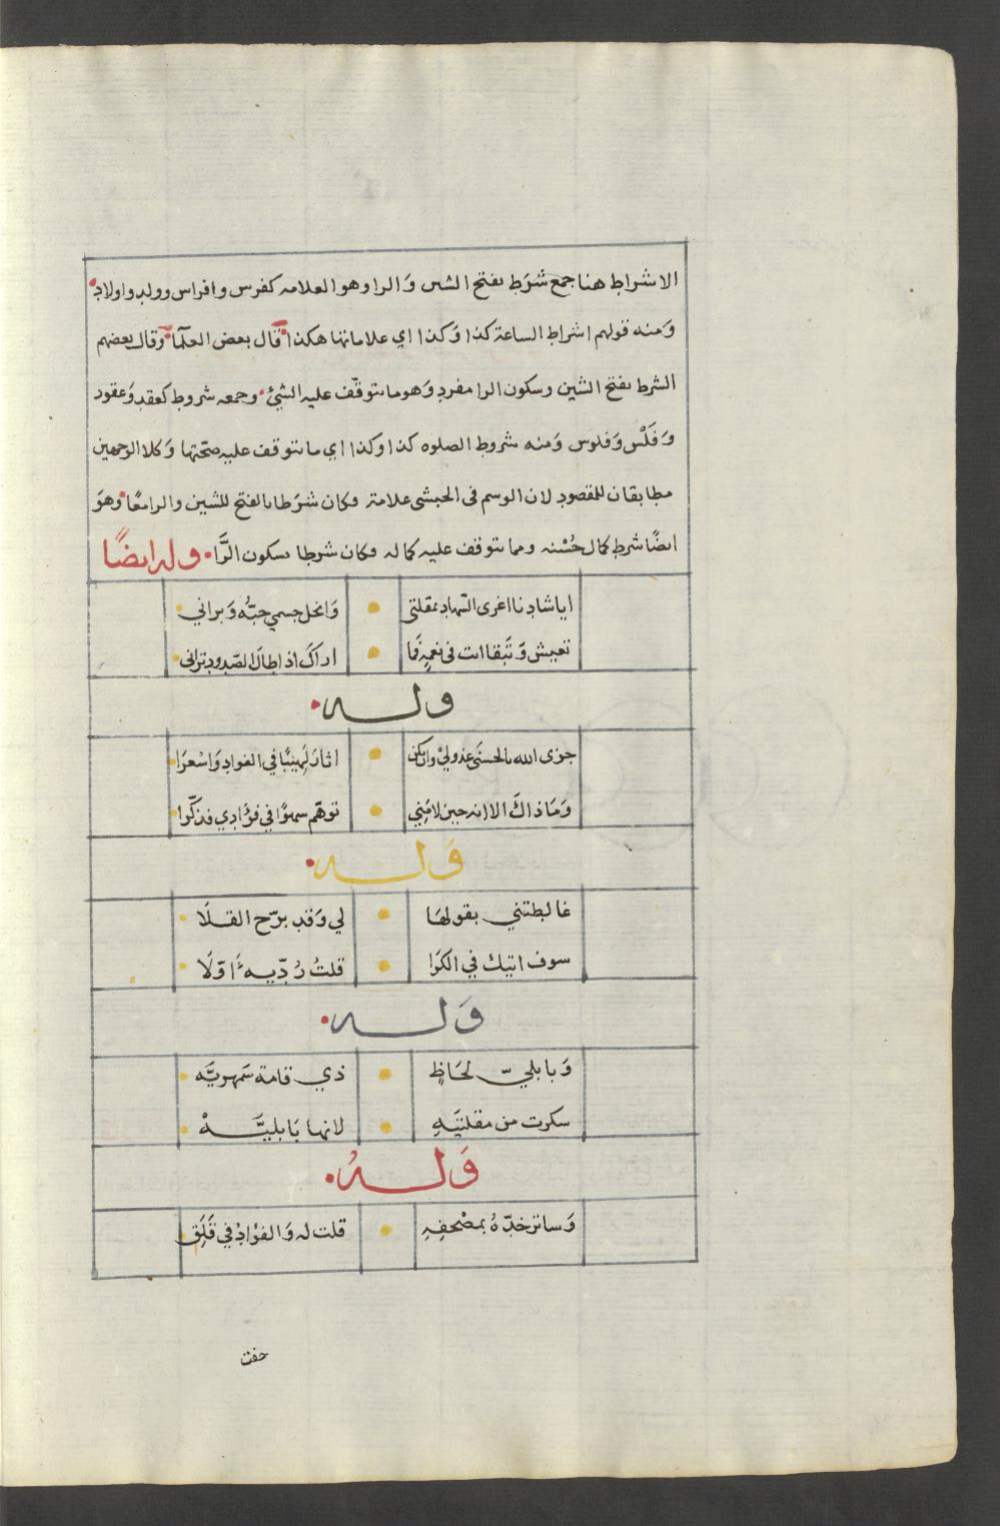 الاشراط هنا جمع شَرَط بفتح الشين وَالراء وهو العلامه كفرس وافراس وولد واولاد
وَمنه قولهم اشراط الساعة كذا وَكذا اي علاماتها هكذا قال بعض العلمآ وقال بعضهم
الشرط بفتح الشين وسكون الرا مفرد وَهو ما تتوقّف عليه الشئ وجمعه شروط كعقد وَعقود
وَفَلْس وَفلوس وَمنه شروط الصلوه كذا وكذا اي ما تتوقف عليه صحّتها وَكلا الوجهين
مطابقان للمقصود لان الوسم فى الحبشى علامة وكان شَرَطا بالفتح للشين والرا معًا وهوَ
ايضًا شرط كمال حُسْنه ومما تتوقف عليه كماله وكان شرطا بسكون الرَّا وله ايضًا
اياشادنا اغرى السّهاد بمقلتى وَانحل جسمي حبّه وَبراني
تعيش وَتَبقا انت فى نعمٍ فَما اراكَ اذ اطالَ الصّدود ترانى
وله
جزى الله بالحسنَى عذولي وان يكن اثارَ لَهيبًا في الفواد وَاسْعرَا
وَمَا ذاكَ الا انه حين لامَني توهّم سهوًا في فؤادي فذكّرا
وَله
غالطتني بقولهَا لي وَقد برّح القلَا
سوف اتيك في الكرَا قلتُ رُدّيه أوّلَا
وَله
وَبابليّ لحَاظٍ ذي قامة سَمهريَّه
سكرت من مقلتيَهِ لانها بَابليَّهْ
وَلهُ
وَساتر خدّهُ بمصْحفِهِ قلت له وَالفؤادُ في قَلَقِ
خفت